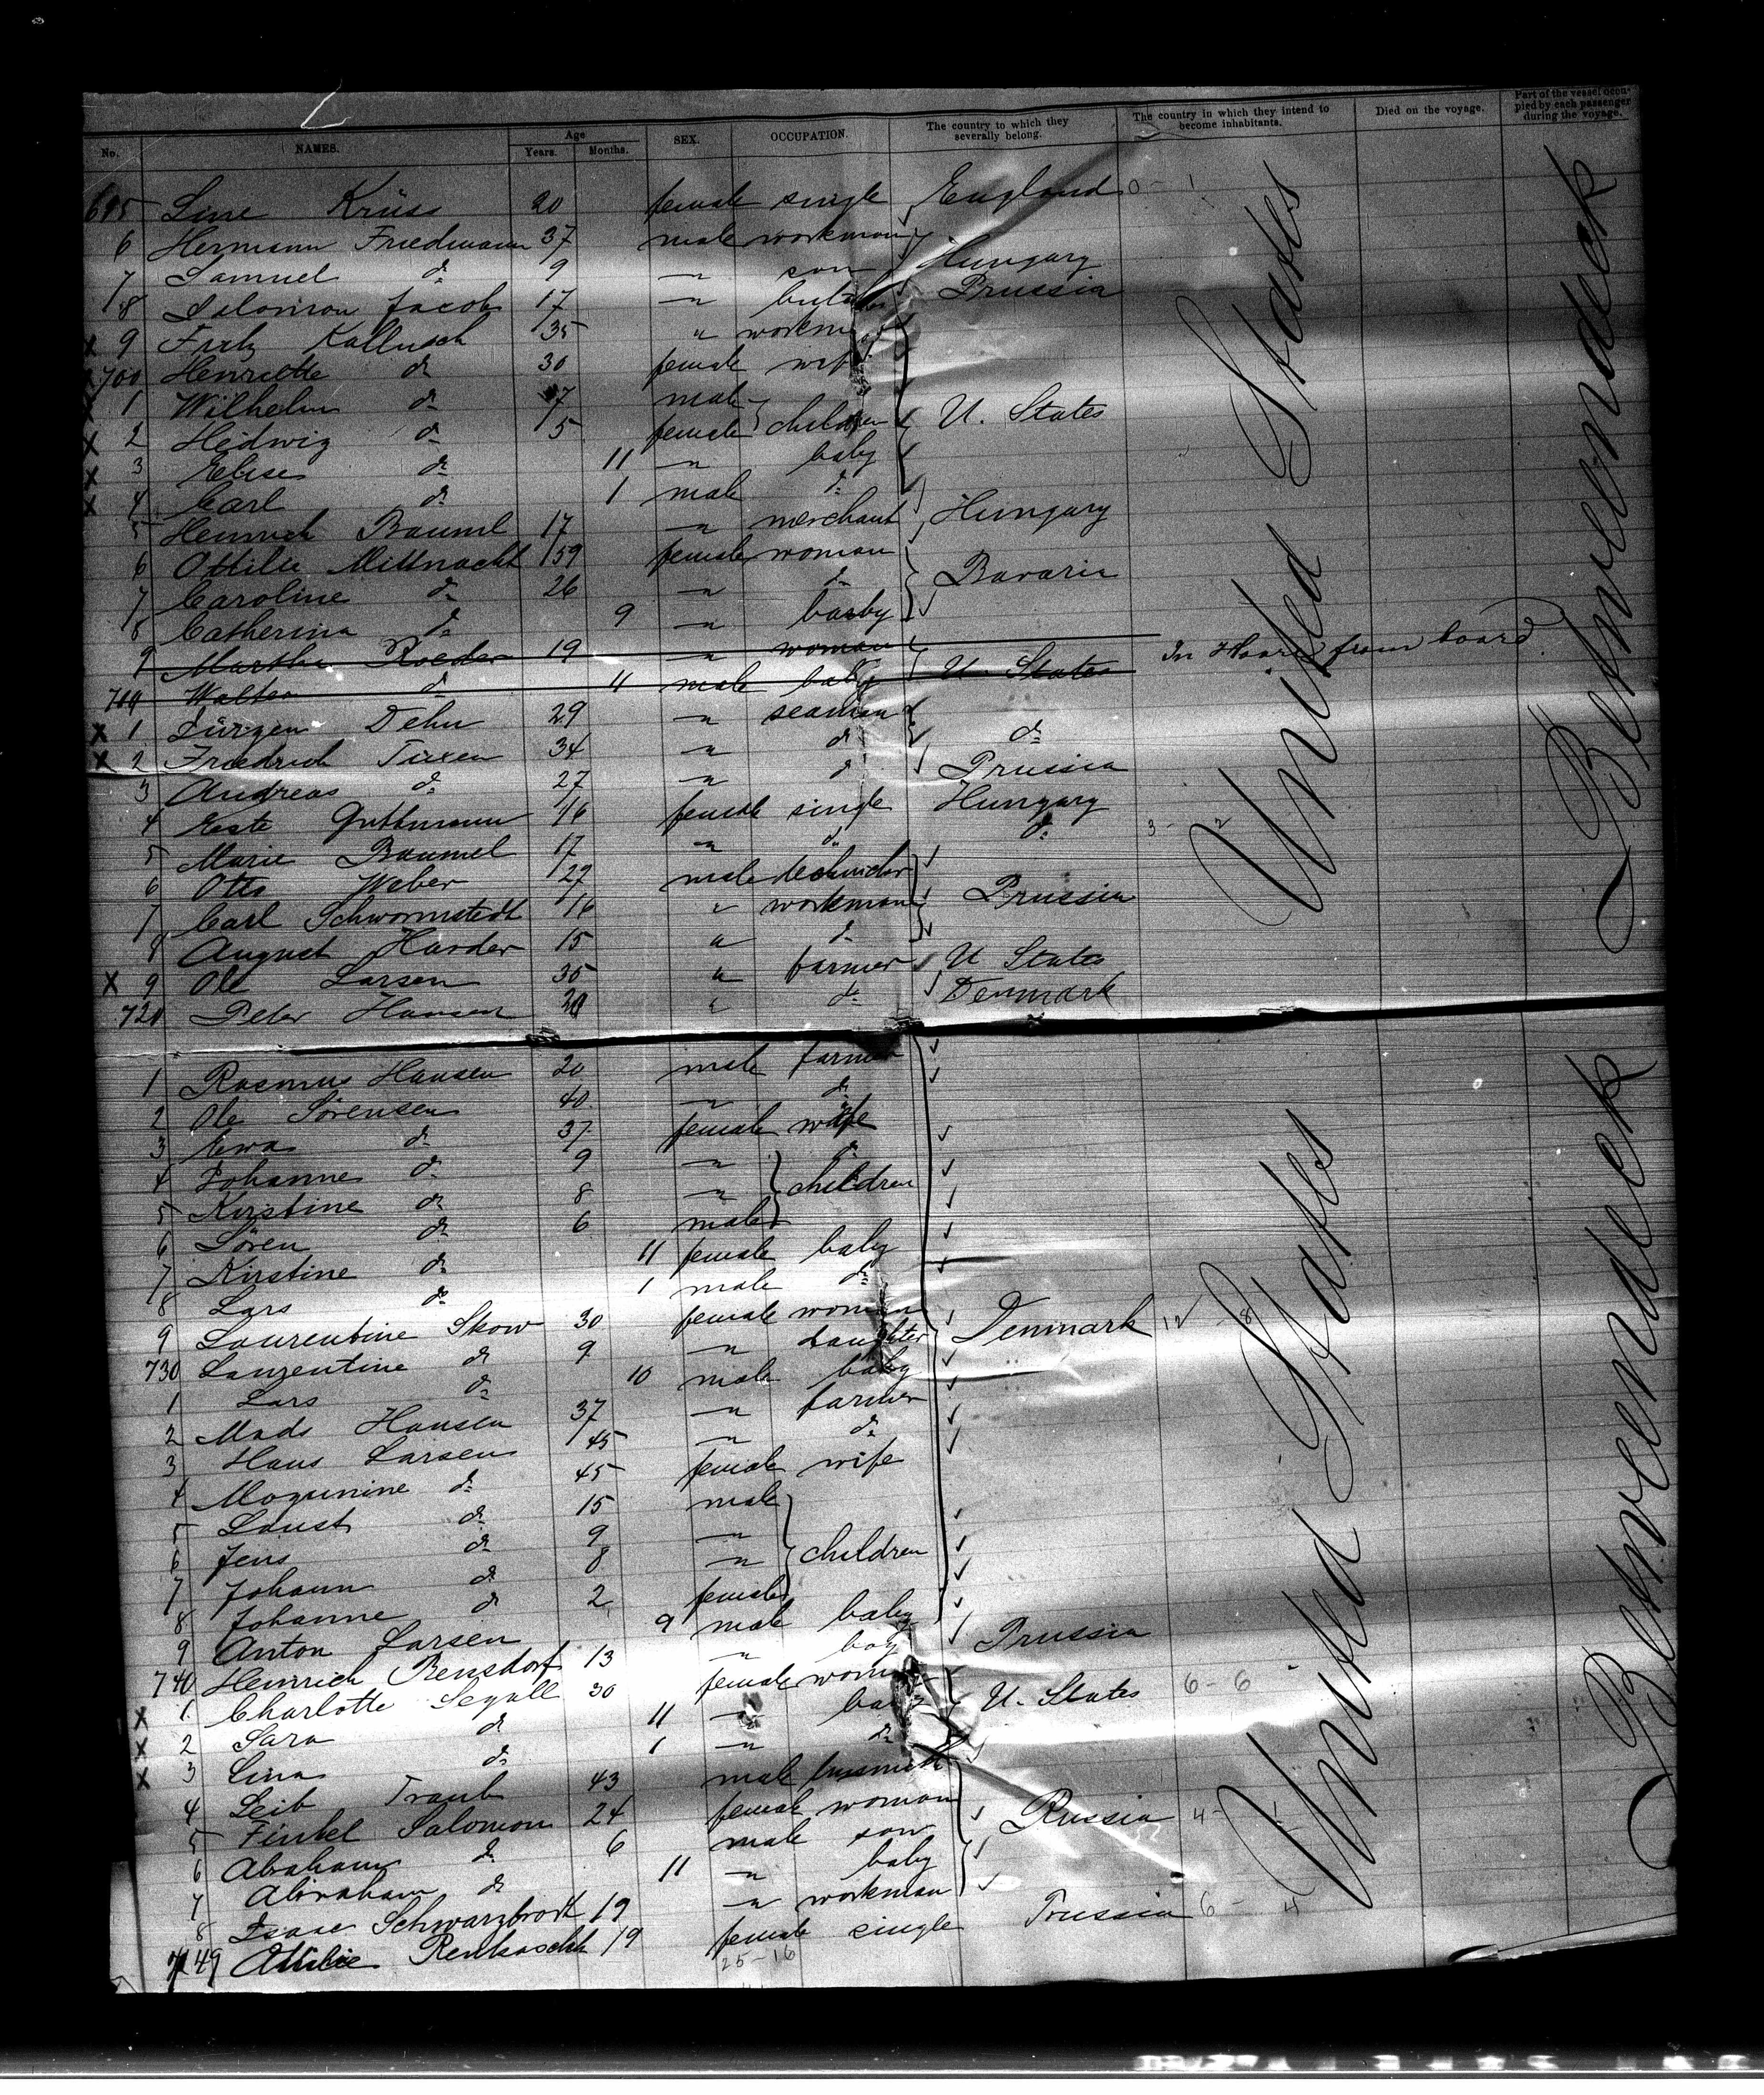 No. NAMES. Age Years. Months. SEX. OCCUPATION. The country to which they severally belong. The country in which they intend to become inhabitants. Died on the voyage. Part of the vessel occupied by each passenger during the voyage.
695 Line Krüss 20 female single England 0 - 1
6 Hermann Friedmann 37 male workman
7 Samuel do 9 " son Hungary
8 Salomon Jacob 17 " Prussia
x 9 Fritz Kallusch 35 " workman
x 700 Henriette do 30 female wife
x 1 Wilhelm do 7 male
x 2 Hedwig do 5 female children U. States
x 3 Elise do 11 " baby
x 4 Carl do 1 male do
5 Heinrich Bauml 17 " merchant Hungary
6 Ottilie Mittnacht 59 female woman
7 Caroline do 26 " do Bavaria
8 Catherina do 9 " baby
9 Martha Roeder 19 " woman
710 Walter do 11 male baby U. States In Havre from board
x 1 Jürgen Dehn 29 " seaman
x 2 Friedrich Tüxen 34 " do do
3 Andreas do 27 " do Prussia
4 Guttmann 16 female single Hungary
5 Marie Baumel 17 " do do 3 - 2
6 Otto Weber 27 male
7 Carl Schwormstedt 16 " workman Prussia
8 August Harder 15 " do
x 9 Ole Larsen 35 " farmer U States
720 Peter Hansen " do Denmark
1 Rasmus Hansen 20 male farmer
2 Ole Sörensen 40 " do
3 Ewa do 37 female wife
4 Johanne do 9 "
5 Kirstine do 8 " children
6 Sören do 6 male
7 Kirstine do 11 female baby
8 Lars do 1 male do
9 Laurentine Skow 30 female woman Denmark
730 Laurentine do 9 " daughter
1 Lars do 10 male baby
2 Mads Hansen 37 " farmer
3 Hans Larsen 45 " do
4 Mogunine do 45 female wife
5 Laust do 15 male
6 Jens do 9 "
7 Johann do 8 " children
8 Johanne do 2 female
9 Anton Larsen 9 male baby
740 Heinrich Rensdorf 13 " boy Prussia
x 1 Charlotte Segall 30 female woman
x 2 Sara do 11 " baby U. States 6 - 6
x 3 Lina do 1 " do
4 Leib Traub 43 male
5 Finkel Salomon 24 female woman
6 Abraham do 6 male son Russia 4 - 1
7 Abraham do 11 " baby
8 Isaac Schwarzbrodt 19 " workman
749 Ottilie Renkaschk 19 female single Prussia 6 -
25-16
United States
United States
Betweendeck
Betweendeck